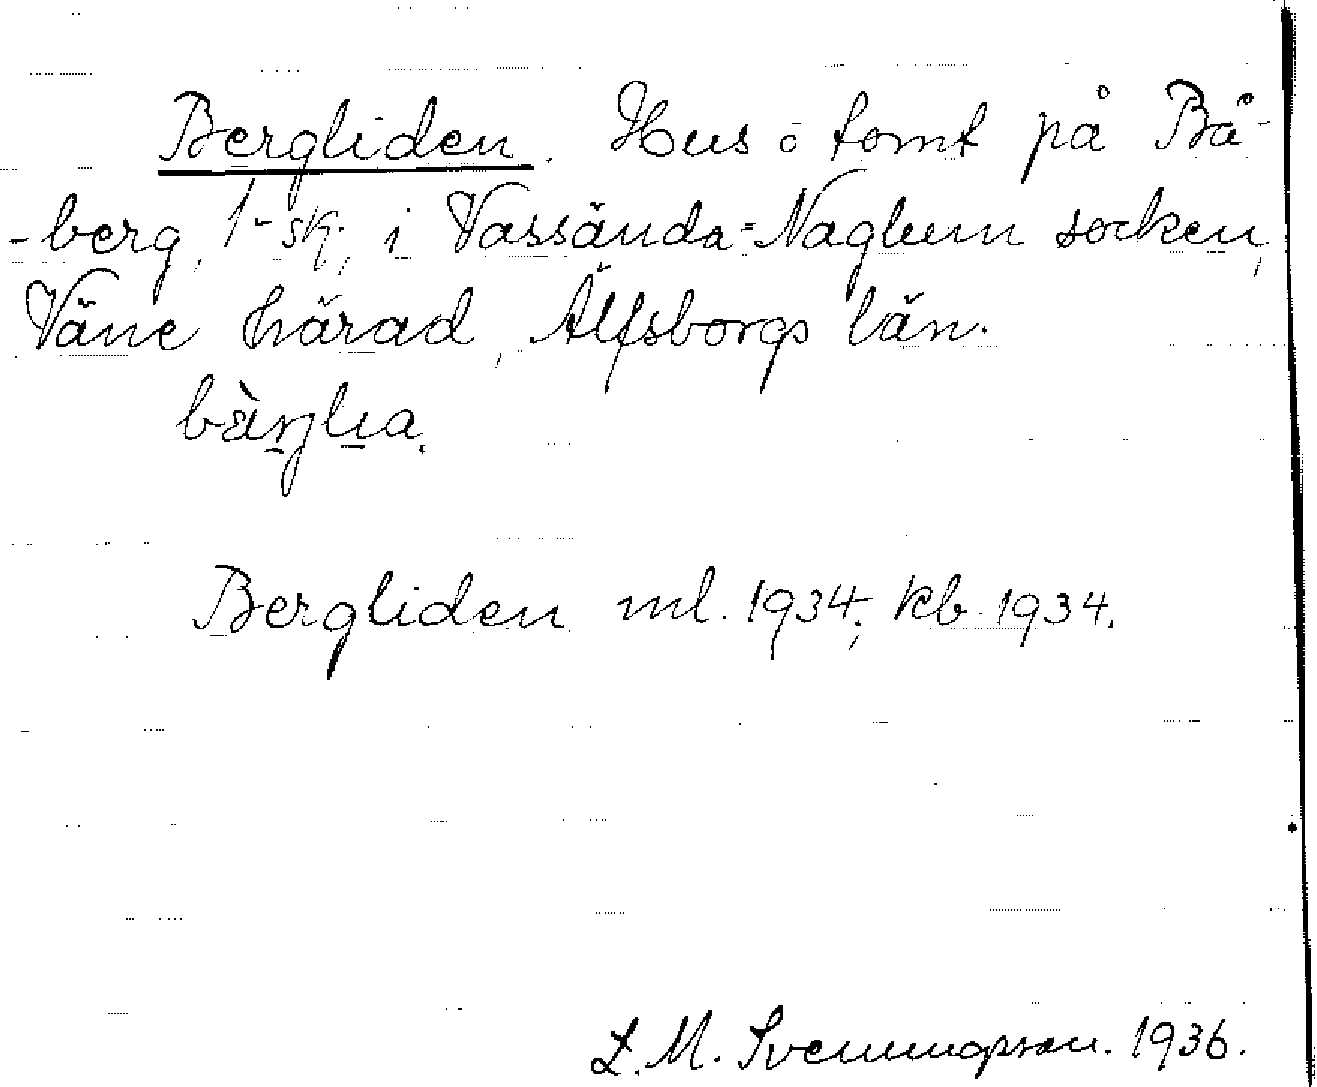 Bergliden. Hus o tomt på Bå-
-berg, 1-sk., i Vassända-Naglum socken,
Väne härad, Älfsborgs län.
bὰŋlıa.
Bergliden ml. 1934; kb. 1934.
L. M. Svenungsson. 1936.